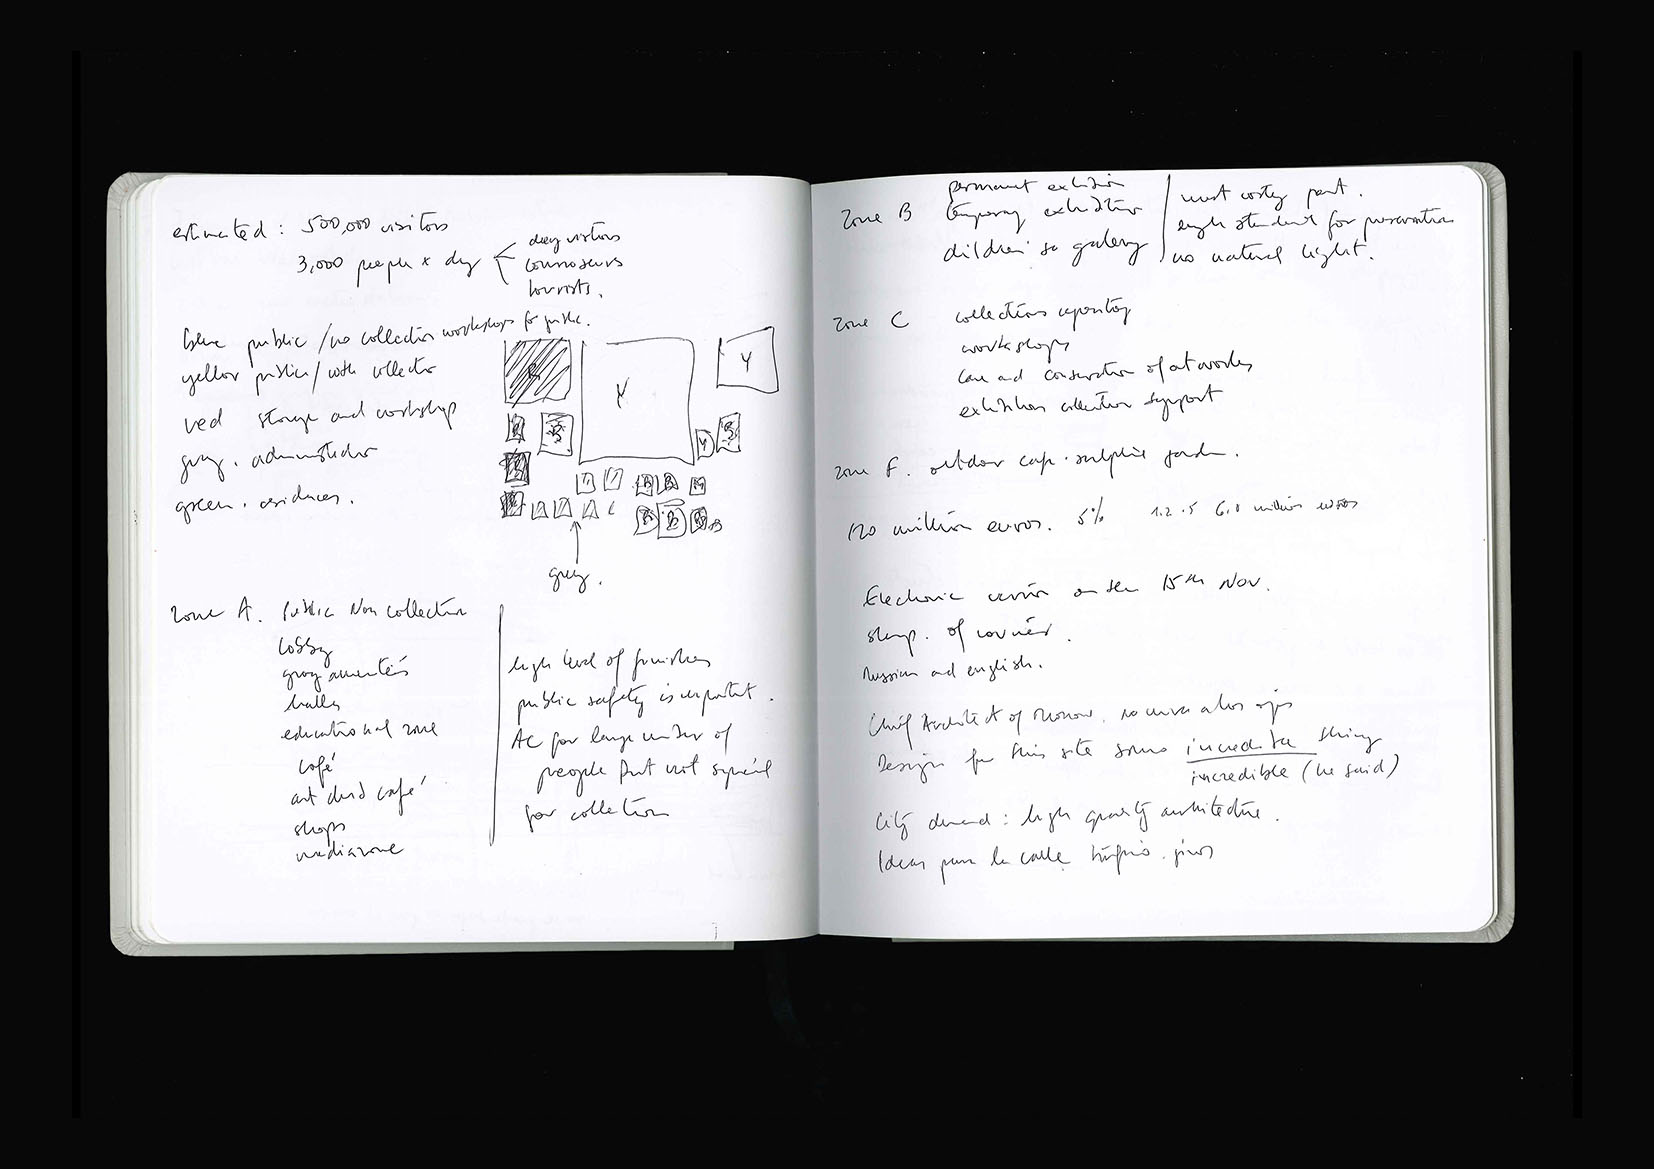 estimated : 500,000 visitors
3,000 people x day
day visitors
connoseurs
tourists.
blue public / no collection workshops for public.
yellow public / with collection
red storage and workshop
gray . administration
green . residences.
Y
Y
Y
B
B
gray.
Zone A. Public Non collection
lobby
group amenities
halls
educational zone
café
art club café
shops
mediazone
high level of finishes
public safety is important.
AC for large number of
people but not special
for collection
Zone B
permanent exhibition
temporary exhibition
children's gallery
most costly part.
high standard for preservation
no natural light.
Zone C
collections repository
workshops
care and conservation of artworks
exhibition collection support
Zone F. outdoor cafe . sculpture garden.
120 million euros. 5% 1.2 . 5 6.0 million euros
Electronic version on the 15th Nov.
stamp. of courier.
Russian and english.
Chief Architect of Moscow.
Design for this site some incredible thing
incredible (he said)
City demand : high quality architecture.
Ideas para la calle